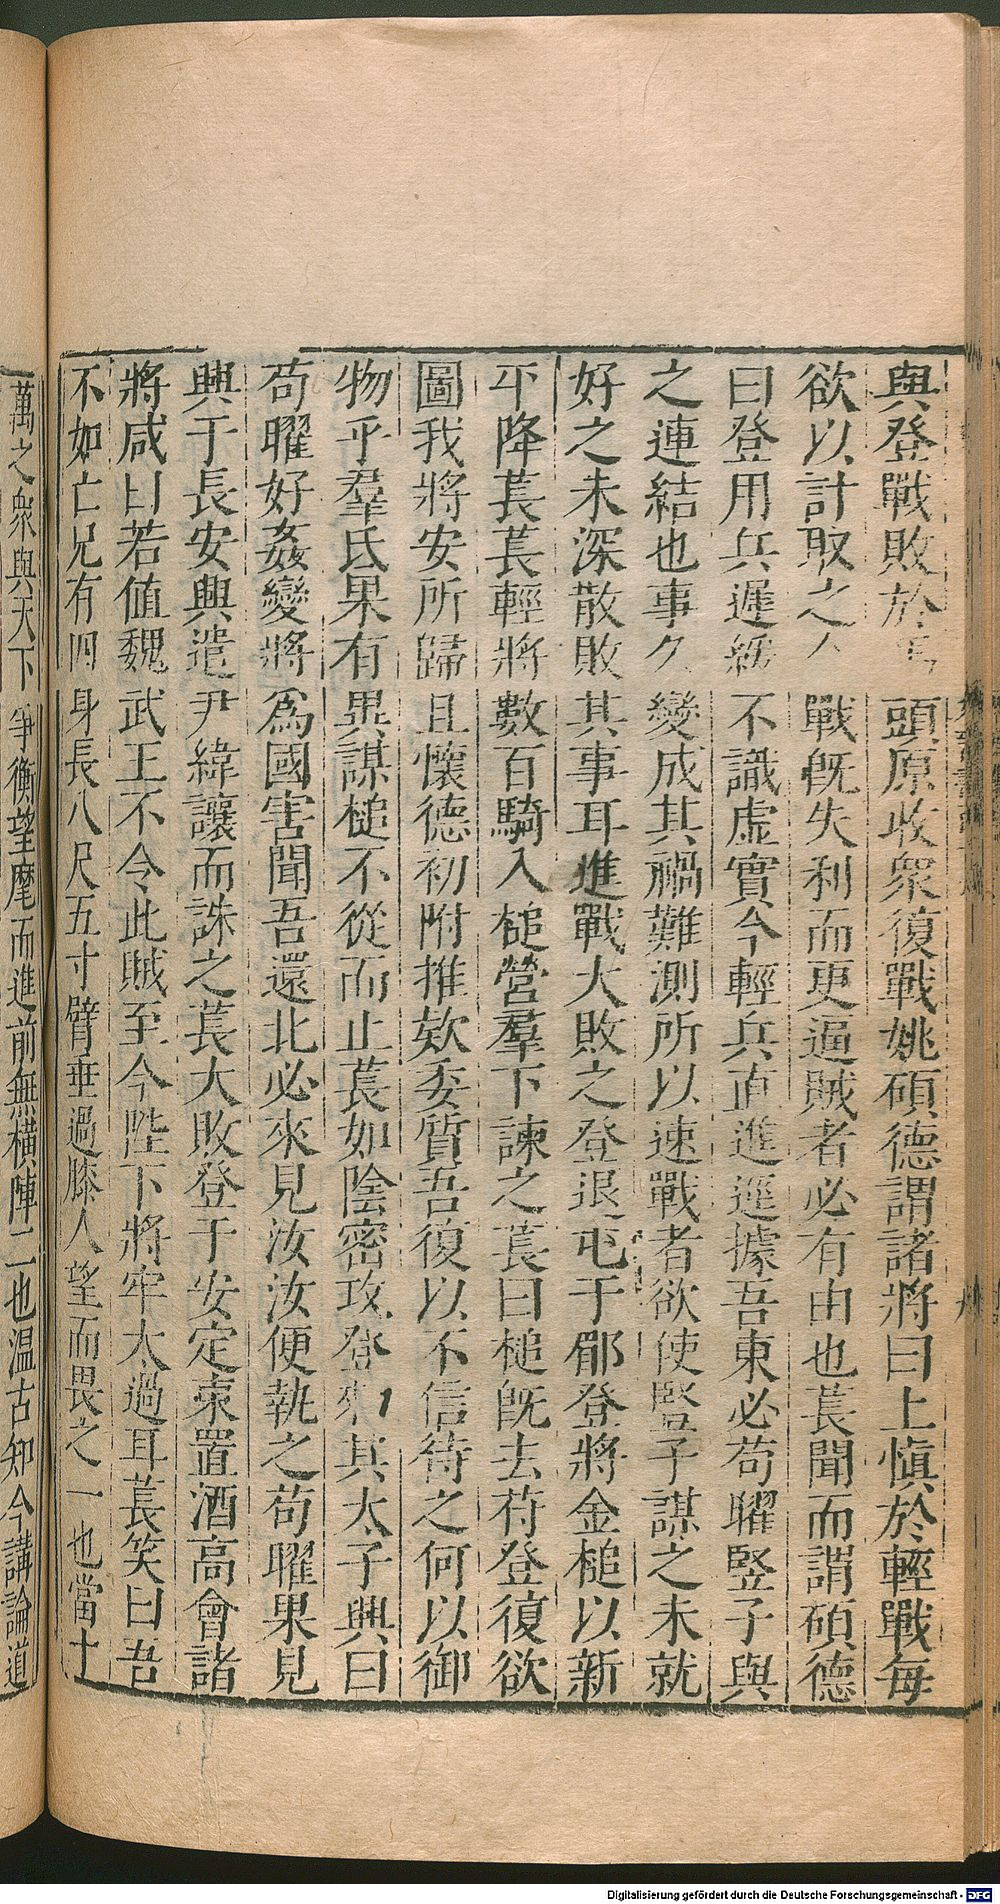 與登戰敗於馬頭原收衆復戰姚碩德謂諸將曰上慎於輕戰每
欲以計取之今戰旣失利而更逼賊者必有由也萇聞而謂碩德
曰登用兵遲緩不識虛實今輕兵直進逕據吾東必苟曜竪子與
之連結也事久變成其禍難測所以速戰者欲使竪子謀之未就
好之未深散敗其事耳進戰大敗之登退屯于郿登將金槌以新
平降萇萇輕將數百騎入槌營羣下諫之萇曰槌旣去苻登復欲
圖我將安所歸且懷德初附推欵委質吾復以不信待之何以御
物乎羣氐果有異謀槌不從而止萇如陰密攻登 其太子興曰
苟曜好姦變將爲國害聞吾還北必來見汝汝便執之苟曜果見
興于長安興遣尹緯讓而誅之萇大敗登于安定東置酒高會諸
將咸曰若值魏武王不令此賊至今陛下將牢太過耳萇笑曰吾
不如亡兄有四身長八尺五寸臂垂過膝人望而畏之一也當十
萬之衆與天下爭衡望麾而進前無橫陣二也温古知今講論道
Digitalisierung gefördert durch die Deutsche Forschungsgemeinschaft - DFG